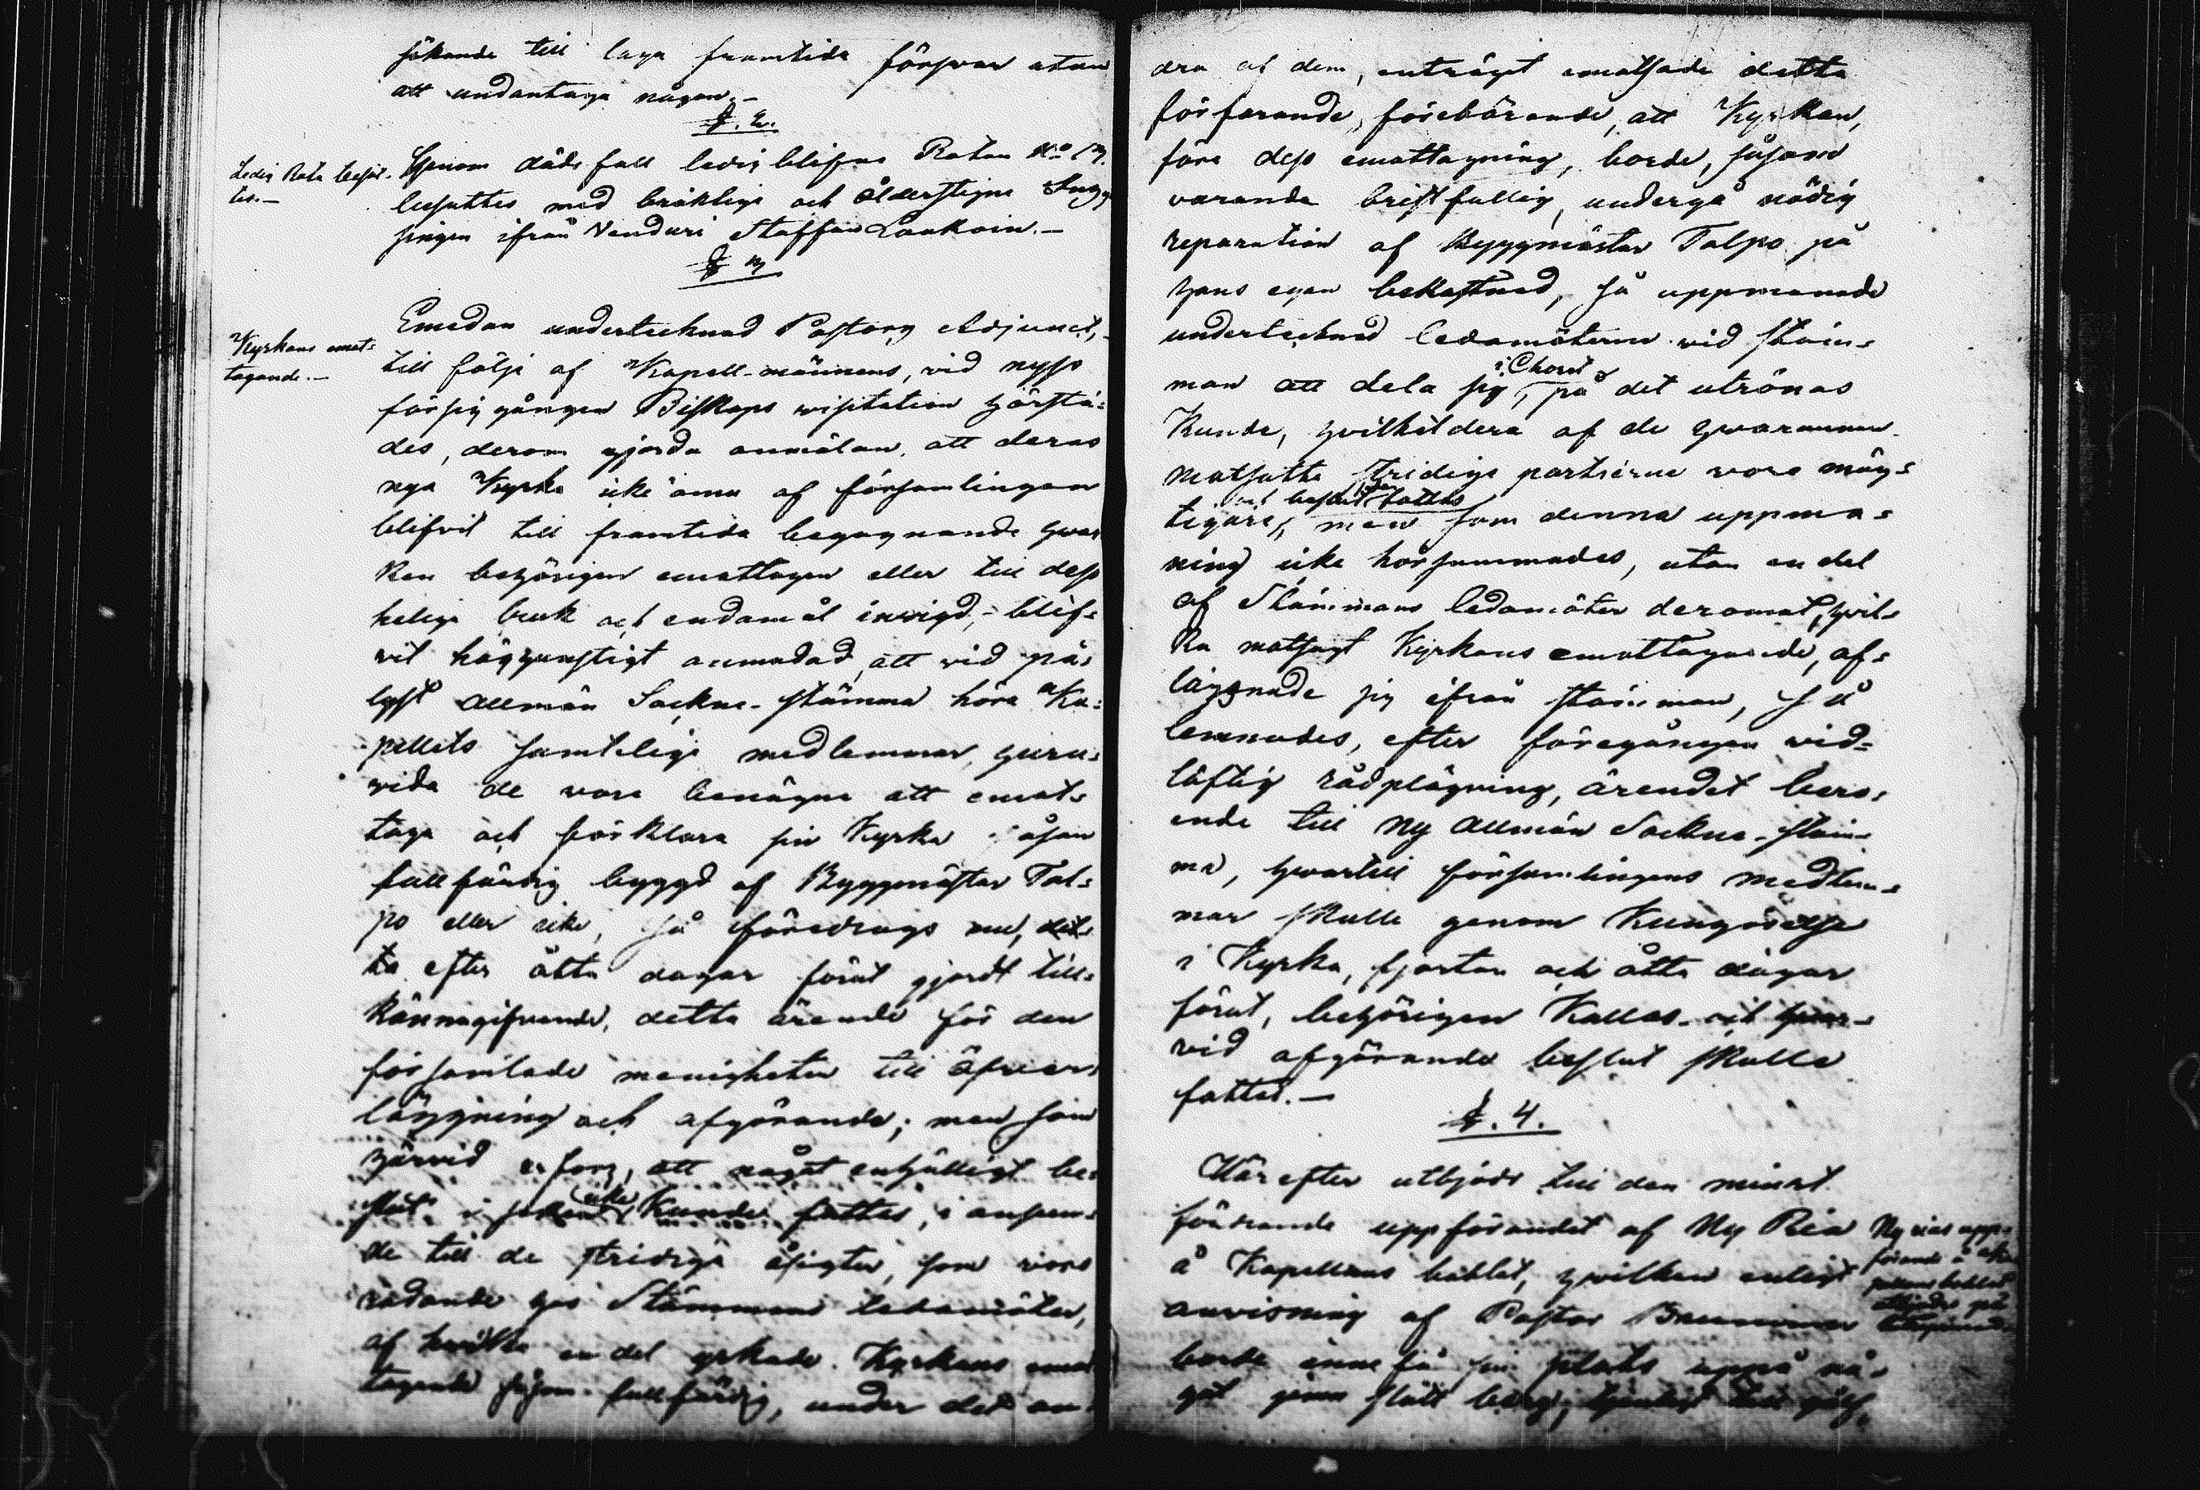 sökande till laga framtida försvar utan
att undantaga någon.-
§. 2.
Ledig Rota besät-
tes.-
Genom dödsfall ledig blifne Rotan No 13.
besattes med bräklige och ålderstigne
ifrån Venduri Staffan Laukain.-
§ 3
Kyrkans emot-
tagande.-
Emedan undertecknad Pastors Adjunct,
till följe af Kapell-männens, vid nyss
försiggången Biskops wisitation härstä-
des, derom gjorda anmälan, att deras
nya Kyrka icke ännu af församlingen
blifvit till framtida begagnande hvar
ken behörigen emottagen eller till dess
helige bruk och endamål invigd,- blif-
vit höggunstigt anmodad, att vid på-
lyst allmän Sockne-stämma höra Ka-
pellets samtelige medlemmar, huru-
vida de vore benägne att emot-
taga och förklara sin Kyrka såsom
fullfärdig byggd af Byggmästar Tal-
po eller icke, så föredrogs nu, det-
ta efter åtta dagar förut gjordt till-
kännagifvande, detta ärende för den
församlade menigheten till öfver-
läggning och afgörande; men som
härvid erfors, att något enhälligt be-
slut i saken icke kunde fattas, i anseen-
de till de stridiga åsigter, som voro
rådande hos Stämmans ledamöter,
af hvilka en del yrkade Kyrkans emot
tagande såsom fullfärdig, under det an-
dra af dem, enträget emotsade detta
förfarande, förebärande, att Kyrkan,
före dess emottagning, borde, såsom
varande bristfullig, undergå nödig
reparation af Byggmästar Talpo på
hans egen bekostnad, så uppmanade
undertecknad ledamöterne vid stäm-
i Choret
man att dela sig, på det utrönas
kunde, hvilketdera af de hvarannan
motsatta stridige partierne vore mäg-
och beslut fattas
tigare, men som denna uppma-
ning icke hörsammades, utan en del
af Stämmans ledamöter deremot, hvil-
ka motsagt Kyrkans emottagande, af-
lägsnade sig ifrån stämman, så
lemnades, efter föregången vid-
löftig rådplägning, ärendet bero-
ende till ny allmän Sockne-stäm-
ma, hvartill församlingens medlem-
mar skulle genom kungörelse
i Kyrka, fjorton och åtta dagar
förut, behörigen kallas och hvar-
vid afgörande beslut skulle
fattas.-
§. 4.
Härefter utbjöds till den minst
fordrande uppförandet af Ny Ria
å Kapellans bohlet, hvilken enligt
anvisning af Pastor
borde innefå sin plats uppå nå-
got jemn slätt berg, tjenligt till golf,
Ny rias upp-
förande å Ka-
pellans bohlet
utbjöds på